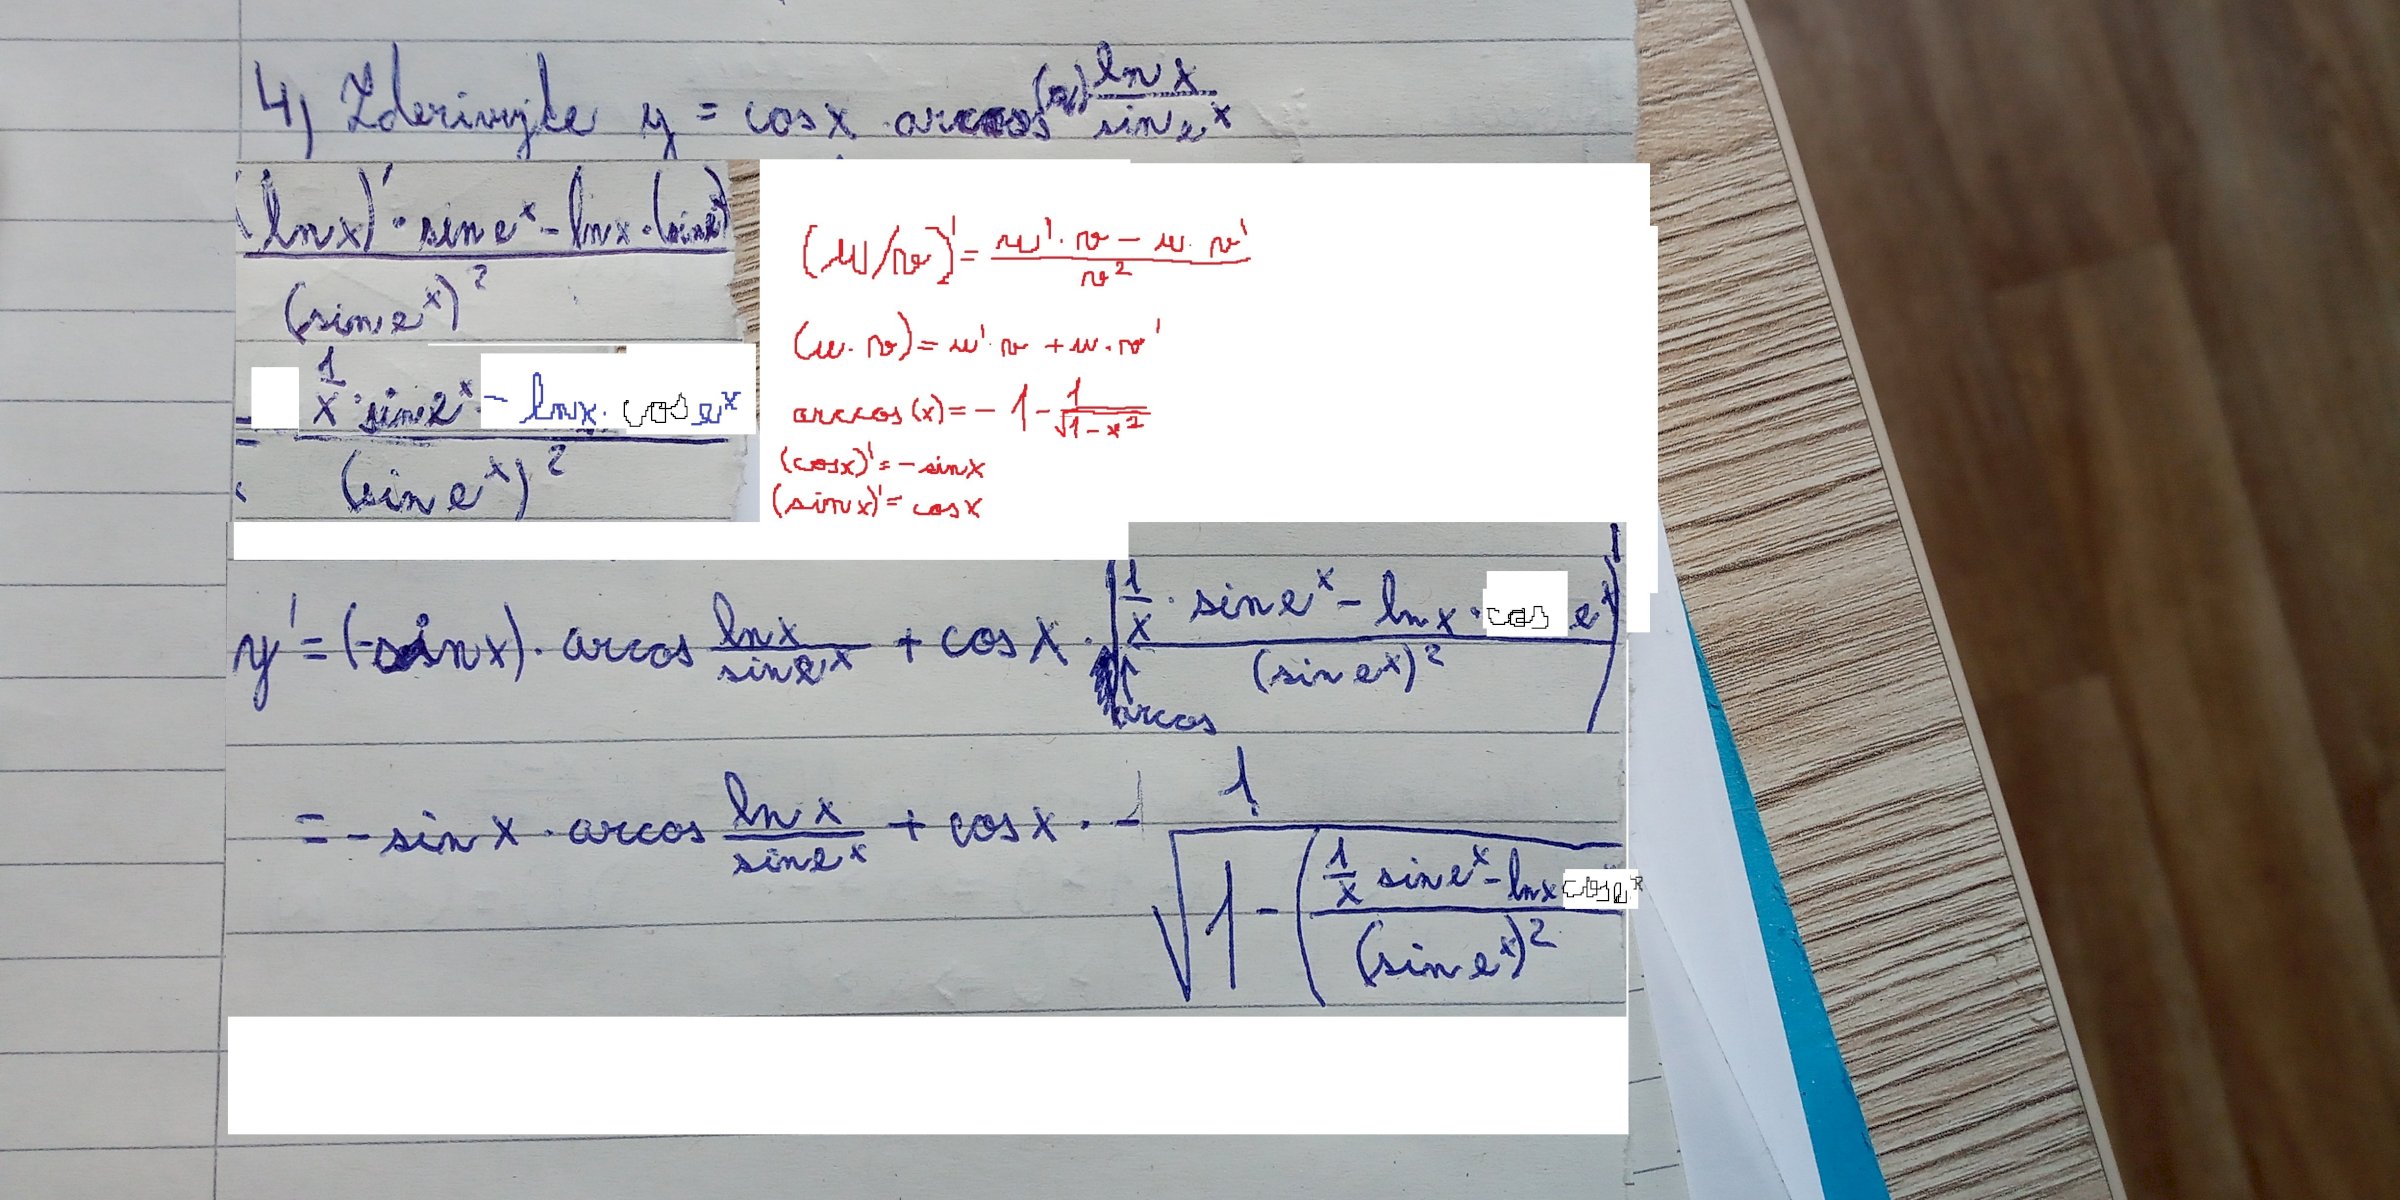 4) Zderivujte y = cos x · arccos (x) ln x / sin e^x
(ln x)' · sin e^x - ln x · (sin e^x)
(sin e^x)^2
(u/v)' = u' · v - u · v' / v^2
(u · v) = u' · v + u · v'
= 1/x · sin e^x - ln x · cos e^x
(sin e^x)^2
arccos (x) = - 1 - 1/√1-x^2
(cos x)' = - sin x
(sin x)' = cos x
y' = (-sin x) · arcos ln x / sin e^x + cos x · (1/x · sin e^x - ln x · cos e^x / (sin e^x)^2)'
arcos
= - sin x · arcos ln x / sin e^x + cos x · - 1 / √1 - (1/x sin e^x - ln x cos e^x / (sin e^x)^2